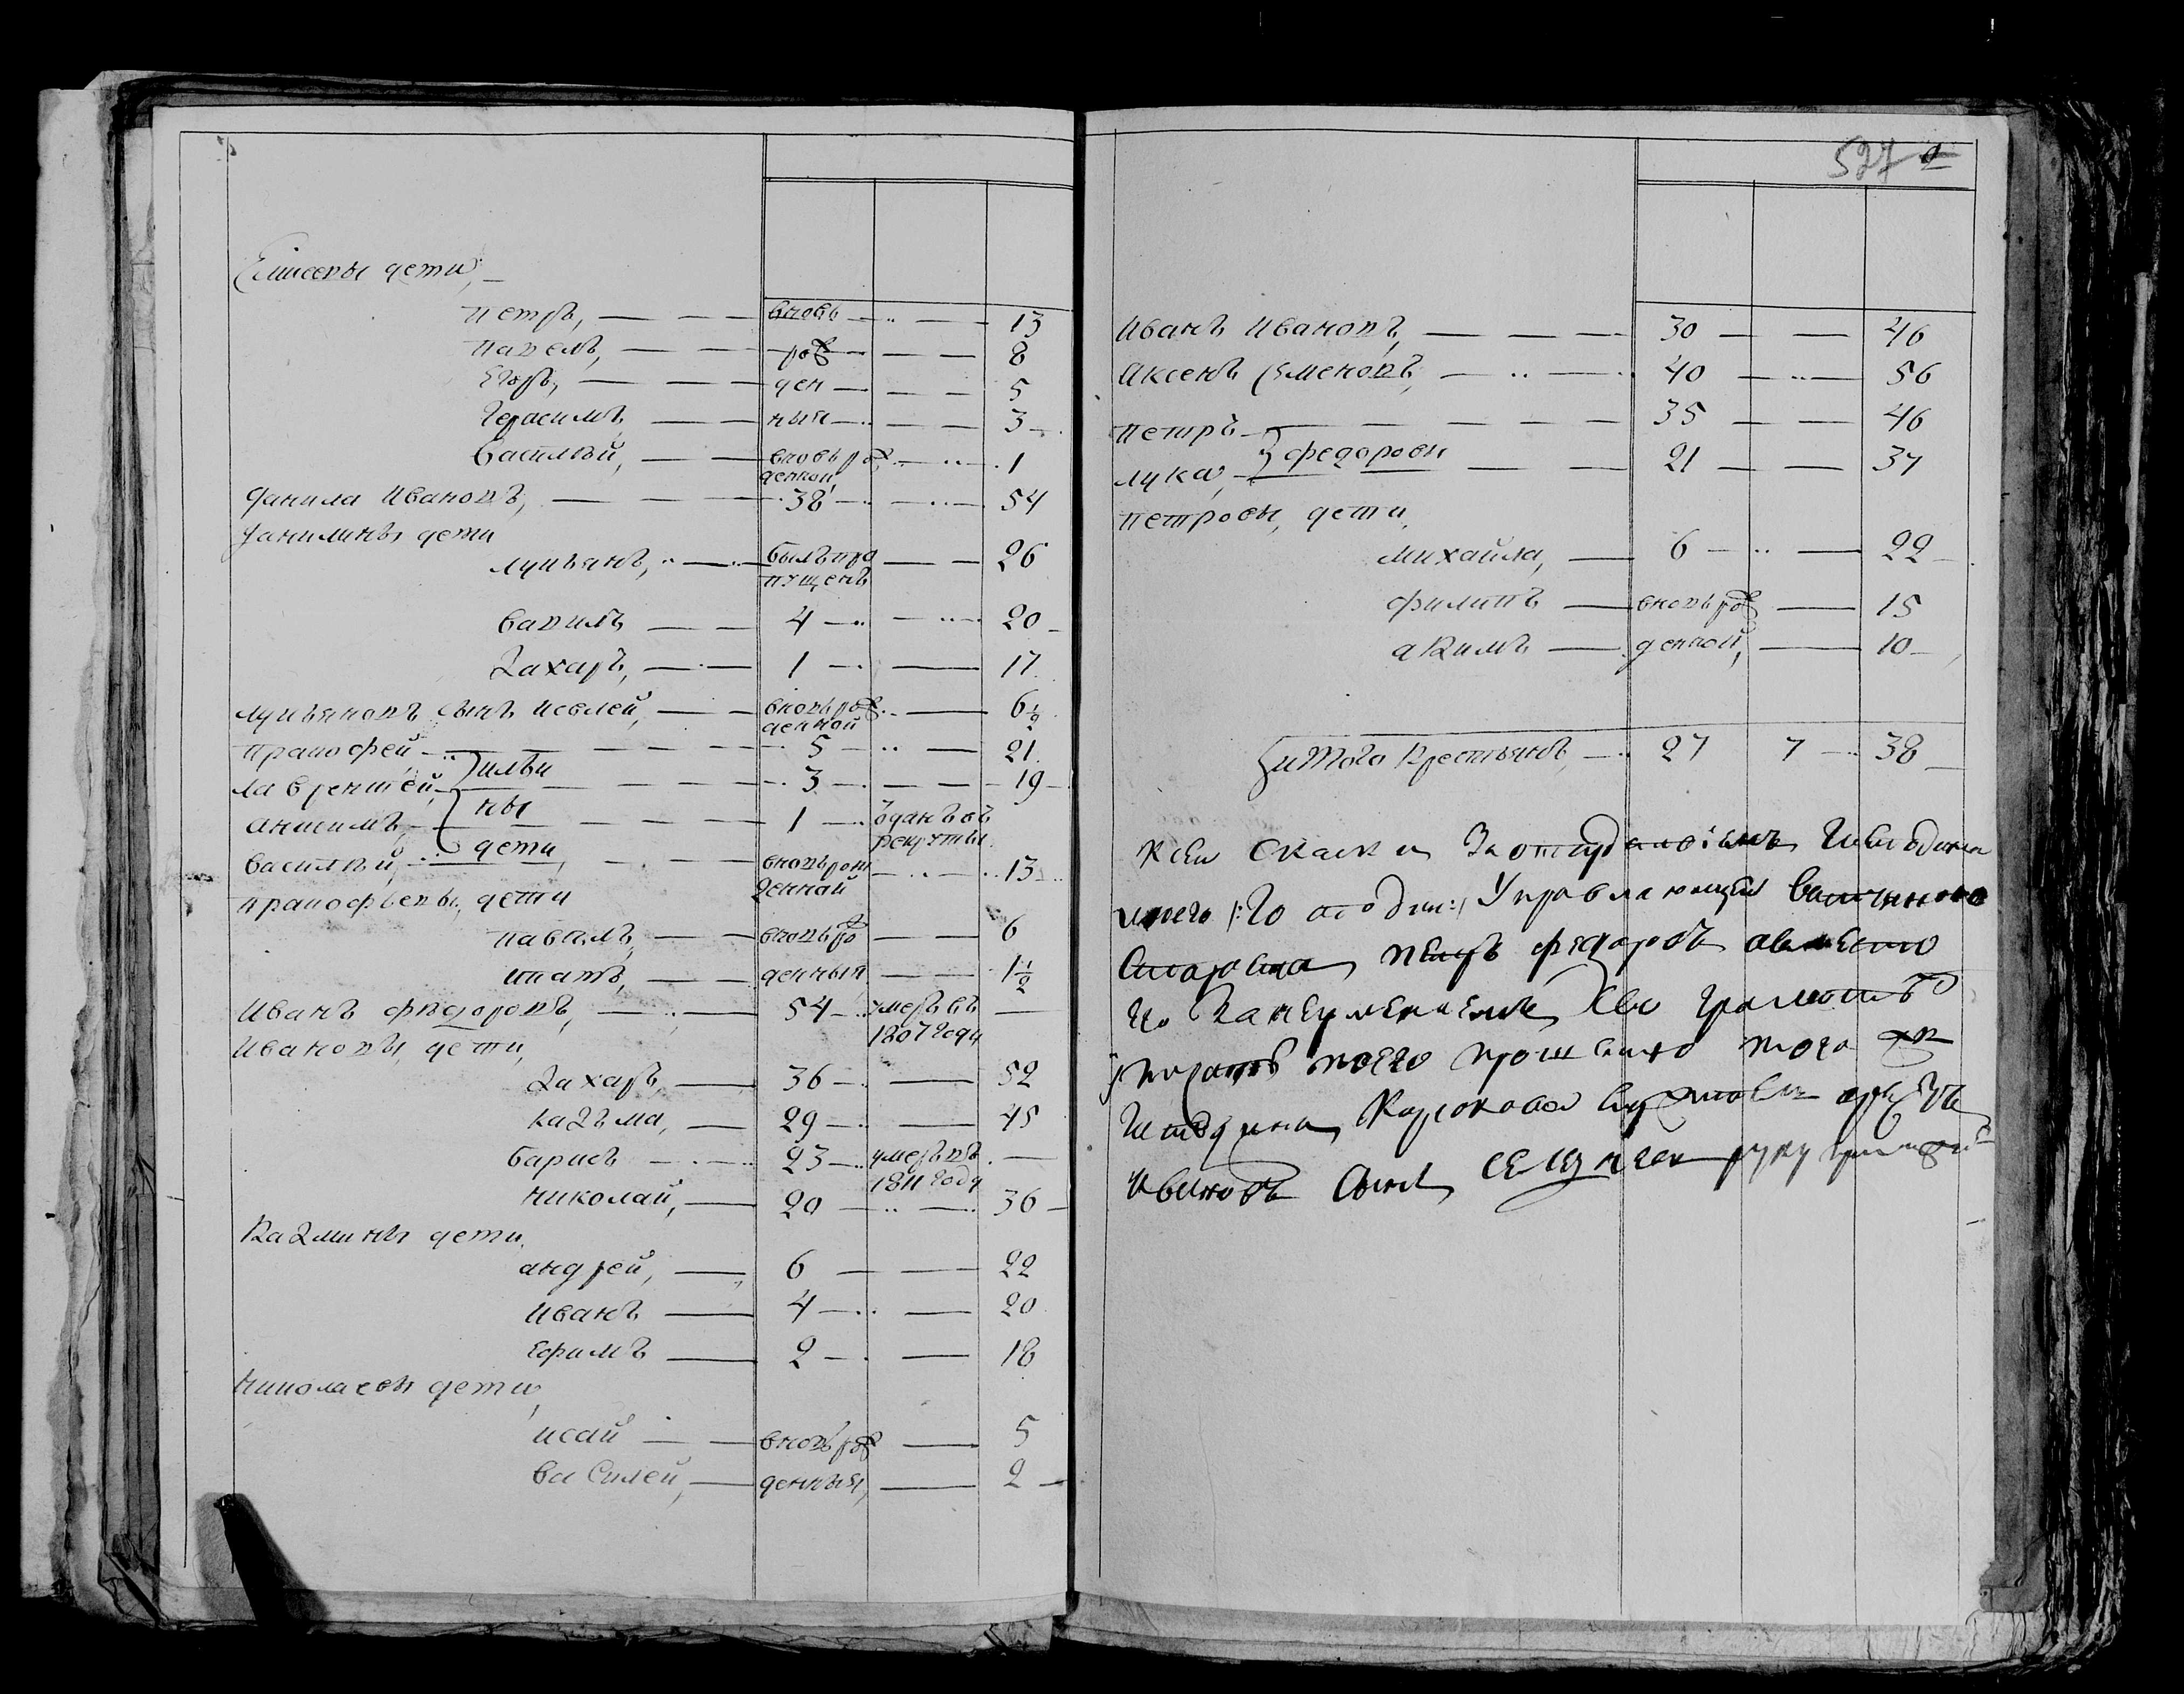 Елисеевы дети,
петръ, вновь 13
павелъ, рож 8
Егоръ, ден 5
Герасимъ, ныя 3
Василей, вновь рож 1
денной
Данила Ивановъ, 38 54
Данилины дети
лукьянъ, былъ про 26
пущенъ
Вавилъ 4 20
Захаръ, 1 17
лукьяновъ сынъ Иевлей, вновь рож 6 1/2
денной
прапофей 5 21
ильи
лаврентей, 3 19
ны
анисимъ, 1 зданъ въ
рекруты
дети
василей, вновь рож 13
денной
прапофьевы, дети
павелъ, вновь ро 6
игнатъ, денныя 1 1/2
Иванъ федоровъ, 54 умеръ въ
1807 году
Ивановы, дети,
Захаръ, 36 52
казьма, 29 45
барисъ 23 умеръ въ
1811 году
николай, 20 36
Казмины дети,
андрей, 6 22
иванъ 4 20
ефимъ 2 18
николаевы дети,
исай вновь рож 5
василей, денныя, 2
527
Иванъ Ивановъ, 30 46
Аксенъ семеновъ, 40 56
петръ 35 46
федоровы
лука, 21 37
петровы, дети,
михайла, 6 22
филипъ вновь рож 15
акимъ денной, 10
итого крестьянъ, 27 7 38
к сей скаски
моего управляющей вотчиною
староста петръ федоровъ а вместо
его грамоте
его прошению того ж
Ивановъ сынъ руку